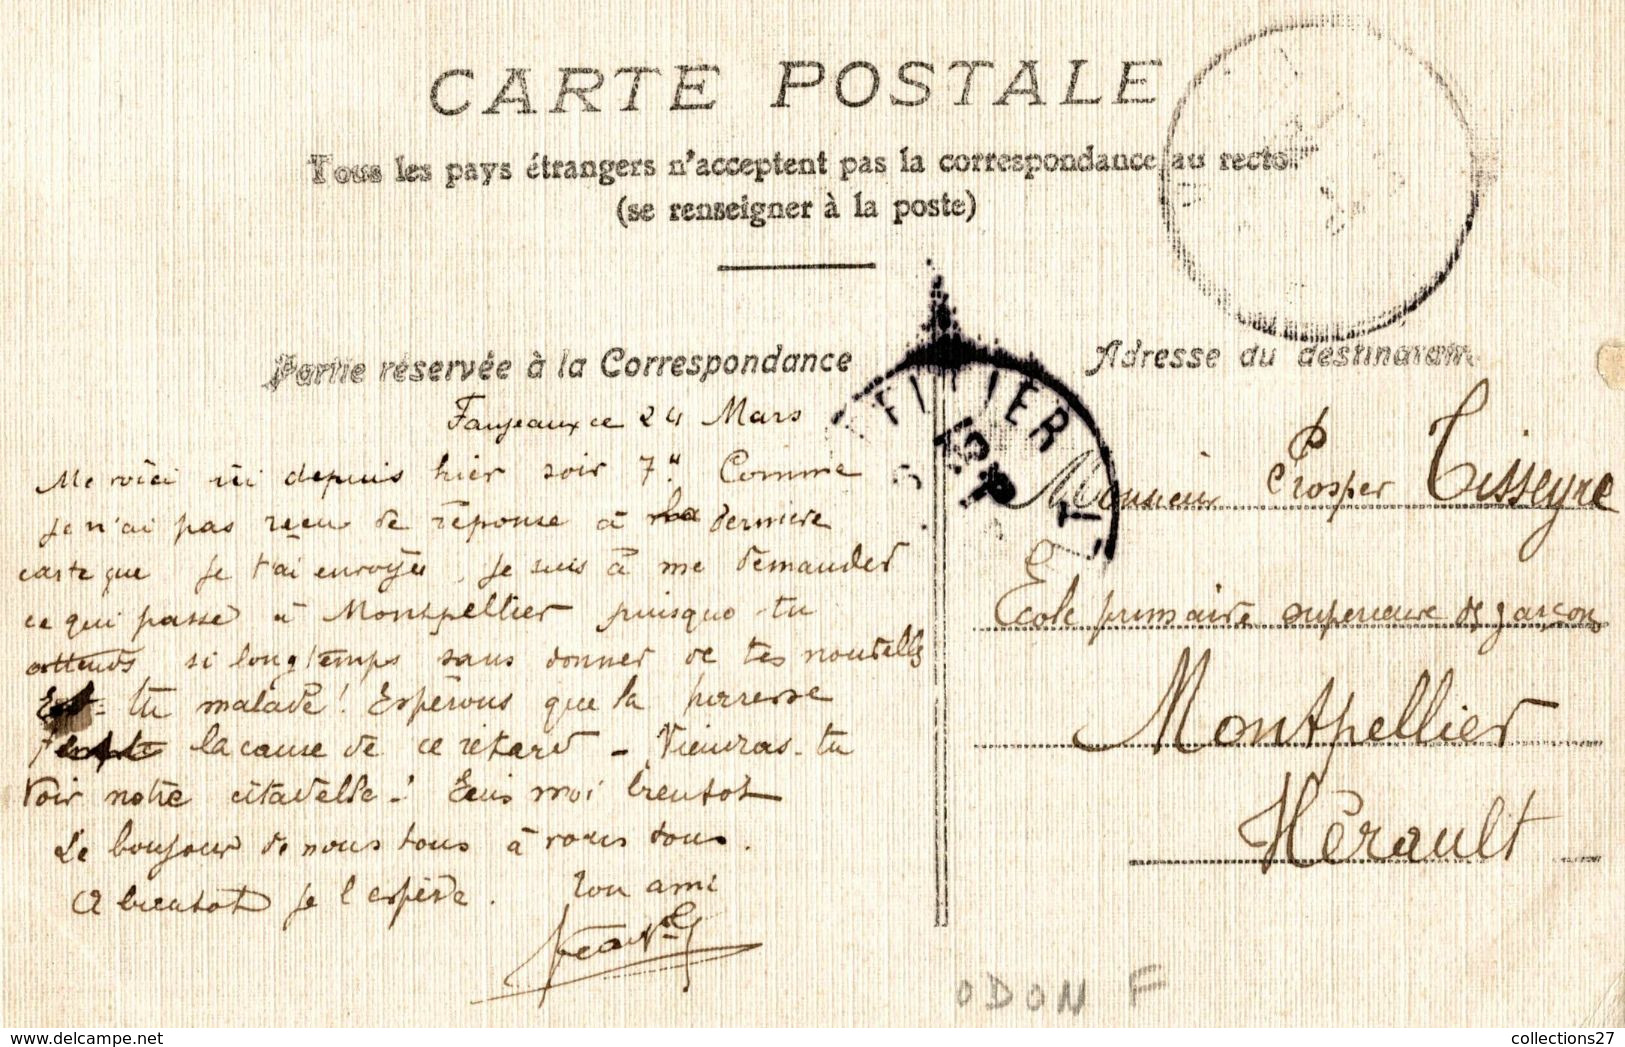 CARTE POSTALE
Tous les pays étrangers n'acceptent pas la correspondance au recto.
(se renseigner à la poste)
Partie réservée à la Correspondance
Adresse du destinataire
Fanjeaux ce 24 Mars
Me voici ici depuis hier soir 7h. Comme
je n'ai pas reçu de réponse à la dernière
carte que je t'ai envoyée, je suis à me demander
ce qui passe à Montpellier puisque tu
attends si longtemps sans donner de tes nouvelles
Est-tu malade! Espérons que la paresse
la cause de ce retard - Viendras-tu
voir notre citadelle-! Ecris moi bientot
Le bonjour de nous tous à vous tous.
A bientot je l'espère. Ton ami
Monsieur Prosper Tisseyre
Ecole primaire superieure de garçons
Montpellier
Hérault
ODON F
collections27